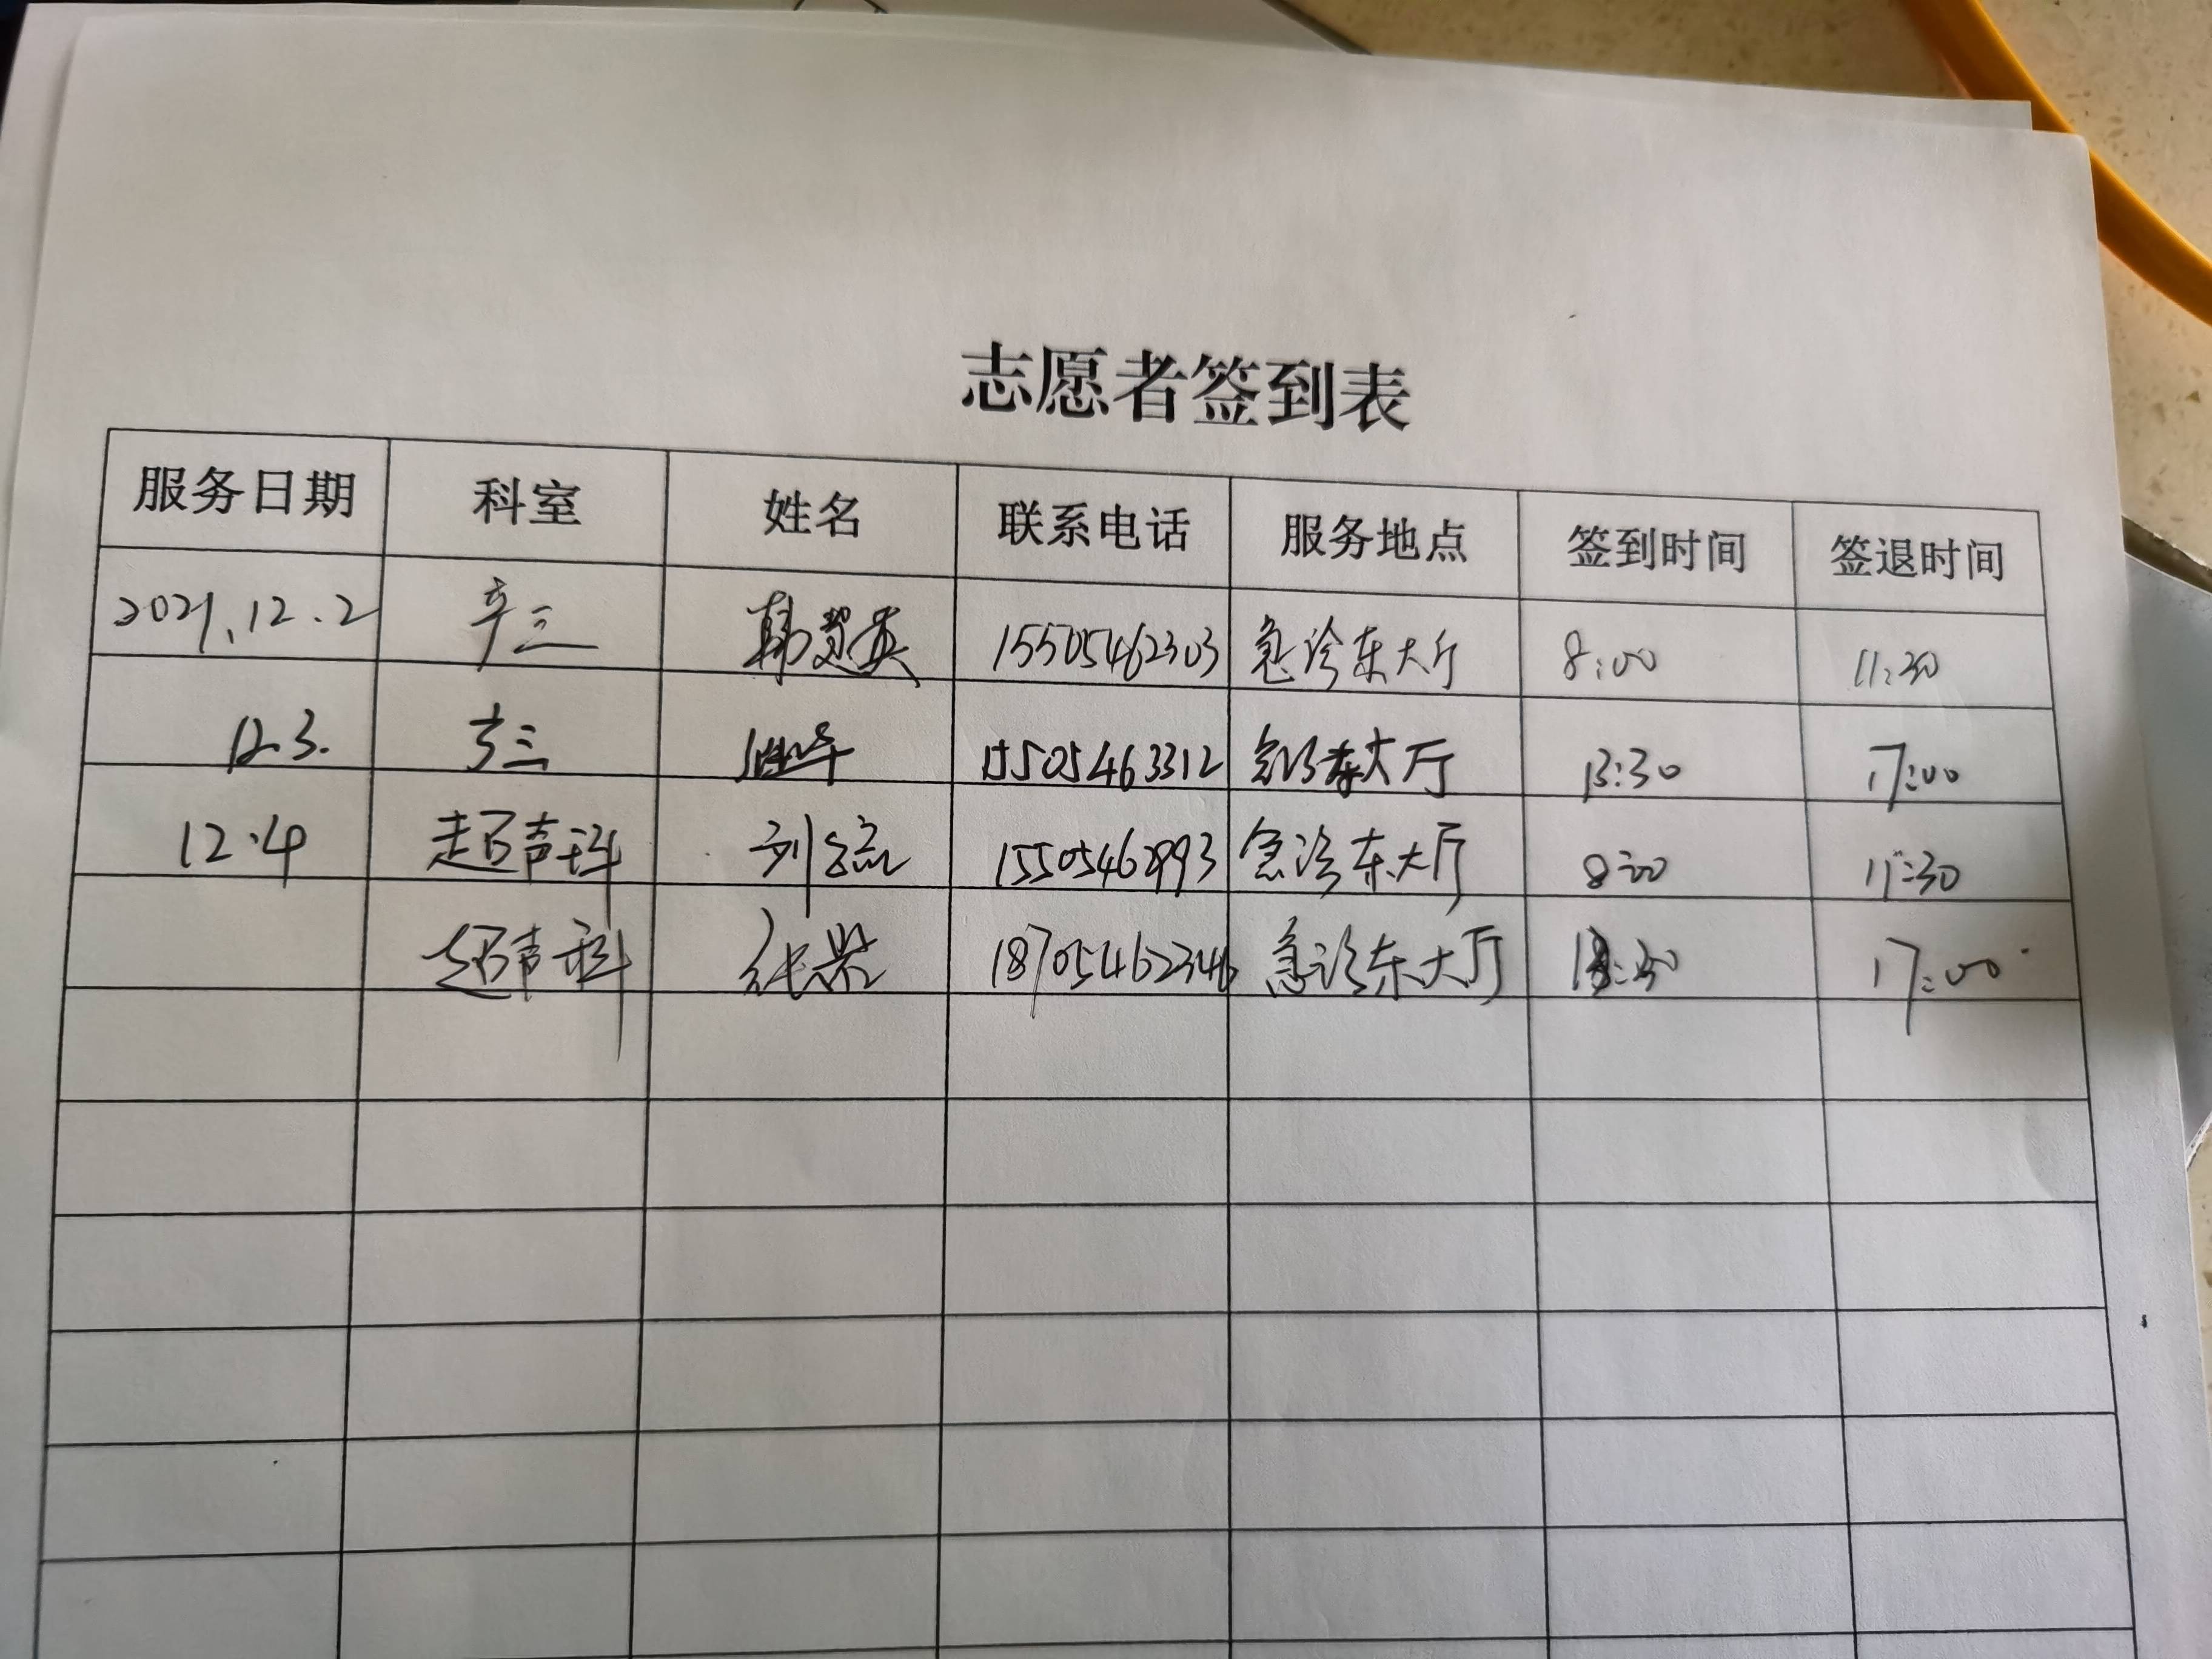 志愿者签到表
服务日期 科室 姓名 联系电话 服务地点 签到时间 签退时间
2021.12.2 韩 15505462303 急诊东大厅 8:00 11:30
12.3. 15505463312 急诊东大厅 13:30 17:00
12.4 超声科 刘 15505462993 急诊东大厅 8:00 11:30
超声科 18705462346 急诊东大厅 13:30 17:00